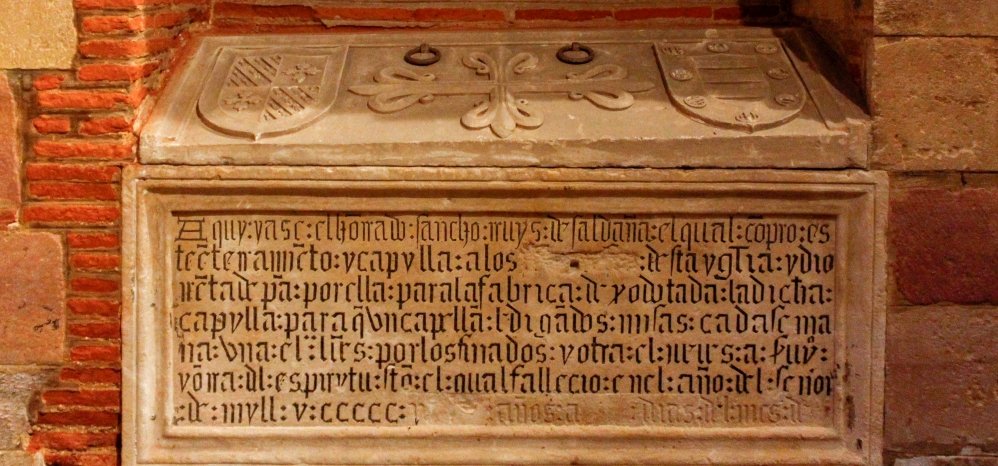 Aquy:yasε:elhõrrado:sancho:rruys:de saldaña:elqual:cõpro:es
tεētεrramiēto:ycapylla:alos :destayglia:ydio
rrēta de pã:porella:paralafabrica:de yodotada:ladicha:
capylla:para q̃vncapellã:ldigãdos:misas:cada sεma
na:vna:el:lūes:porlosfinados:yotra:el:ueues:a:
võrra:dl:espirytu:sto:el:qualfallecio:enel:año:del:señor
:de:myll:y:ccccc: años:a dias del mes:de